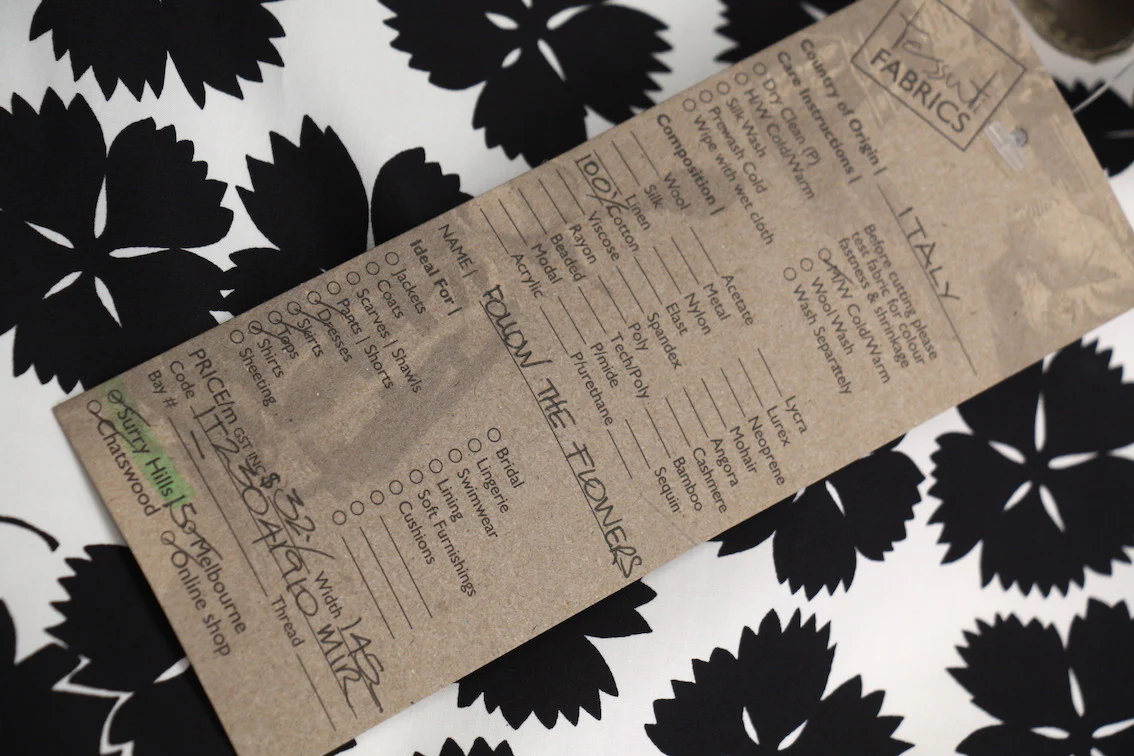 Tessuti
FABRICS
Country of Origin | ITALY
Care Instructions |
Dry Clean (P)
H/W Cold/Warm
Silk Wash
Prewash Cold
Wipe with wet cloth
Before cutting please
test fabric for colour
fastness & shrinkage
M/W Cold/Warm
Wool Wash
Wash Separately
Composition |
Wool
Silk
Linen
100% Cotton
Viscose
Rayon
Beaded
Modal
Acrylic
Acetate
Metal
Nylon
Elast
Spandex
Poly
Tech/Poly
P/mide
P/urethane
Lycra
Lurex
Neoprene
Mohair
Angora
Cashmere
Bamboo
Sequin
NAME | FOLLOW THE FLOWERS
Ideal For |
Jackets
Coats
Scarves | Shawls
Pants | Shorts
Dresses
Skirts
Tops
Shirts
Sheeting
Bridal
Lingerie
Swimwear
Lining
Soft Furnishings
Cushions
PRICE/m GST INC $ 32.- Width 145
Code
Bay #
Thread
Surry Hills | 50m
Chatswood
Melbourne
Online shop